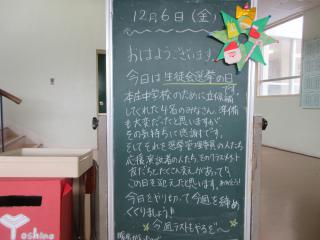 12月6日(金)
おはようございます。
今日は生徒会選挙の日です。
本庄中学校のために立候補
してくれた4名のみなさん、準備
も大変だったと思いますが
その気持ちに感謝です。
そしてそれを選挙管理委員の人たち
応援演説者の人たち、そのクラスメイト
友だちたくさん支えがあって今
この日を迎えたと思います。ありがとう!
今日をやり切って今週を締め
くくりましょう!!
今週テストもやるぞ~
Yoshino